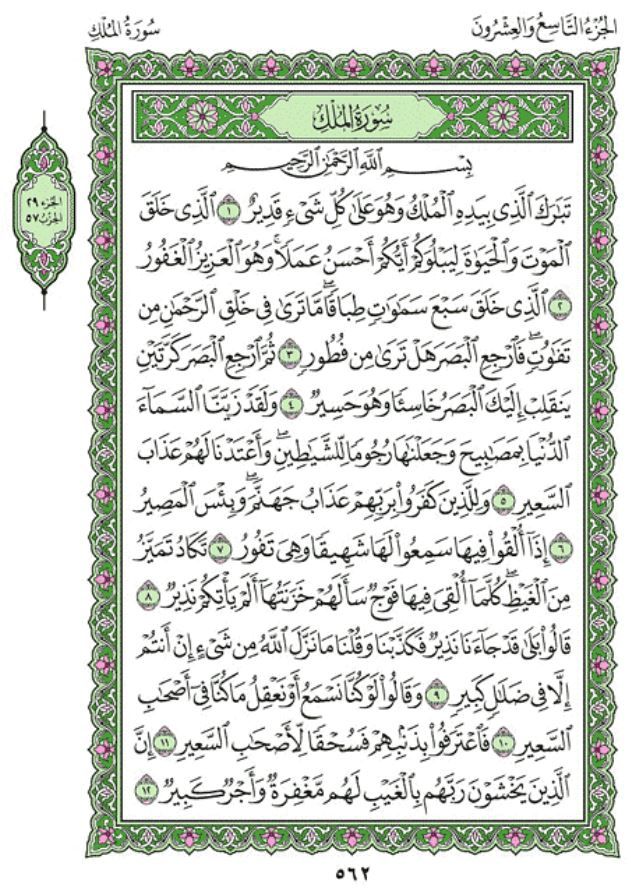 الجُزْءُ التَّاسِعُ وَالعِشْرُونَ
سُورَةُ المُلْكِ
الجزء ٢٩
الحزب ٥٧
سُورَةُ المُلْكِ
بِسْمِ ٱللَّهِ ٱلرَّحْمَٰنِ ٱلرَّحِيمِ
تَبَٰرَكَ ٱلَّذِي بِيَدِهِ ٱلْمُلْكُ وَهُوَ عَلَىٰ كُلِّ شَىْءٍ قَدِيرٌ ١ ٱلَّذِي خَلَقَ
ٱلْمَوْتَ وَٱلْحَيَوٰةَ لِيَبْلُوَكُمْ أَيُّكُمْ أَحْسَنُ عَمَلًاۚ وَهُوَ ٱلْعَزِيزُ ٱلْغَفُورُ
٢ ٱلَّذِي خَلَقَ سَبْعَ سَمَٰوَٰتٍ طِبَاقًاۖ مَّا تَرَىٰ فِي خَلْقِ ٱلرَّحْمَٰنِ مِن
تَفَٰوُتٍۖ فَٱرْجِعِ ٱلْبَصَرَ هَلْ تَرَىٰ مِن فُطُورٍ ٣ ثُمَّ ٱرْجِعِ ٱلْبَصَرَ كَرَّتَيْنِ
يَنقَلِبْ إِلَيْكَ ٱلْبَصَرُ خَاسِئًا وَهُوَ حَسِيرٌ ٤ وَلَقَدْ زَيَّنَّا ٱلسَّمَآءَ
ٱلدُّنْيَا بِمَصَٰبِيحَ وَجَعَلْنَٰهَا رُجُومًا لِّلشَّيَٰطِينِۖ وَأَعْتَدْنَا لَهُمْ عَذَابَ
ٱلسَّعِيرِ ٥ وَلِلَّذِينَ كَفَرُوا۟ بِرَبِّهِمْ عَذَابُ جَهَنَّمَۖ وَبِئْسَ ٱلْمَصِيرُ
٦ إِذَآ أُلْقُوا۟ فِيهَا سَمِعُوا۟ لَهَا شَهِيقًا وَهِيَ تَفُورُ ٧ تَكَادُ تَمَيَّزُ
مِنَ ٱلْغَيْظِۖ كُلَّمَآ أُلْقِيَ فِيهَا فَوْجٌ سَأَلَهُمْ خَزَنَتُهَآ أَلَمْ يَأْتِكُمْ نَذِيرٌ ٨
قَالُوا۟ بَلَىٰ قَدْ جَآءَنَا نَذِيرٌ فَكَذَّبْنَا وَقُلْنَا مَا نَزَّلَ ٱللَّهُ مِن شَىْءٍ إِنْ أَنتُمْ
إِلَّا فِي ضَلَٰلٍ كَبِيرٍ ٩ وَقَالُوا۟ لَوْ كُنَّا نَسْمَعُ أَوْ نَعْقِلُ مَا كُنَّا فِيٓ أَصْحَٰبِ
ٱلسَّعِيرِ ١٠ فَٱعْتَرَفُوا۟ بِذَنۢبِهِمْ فَسُحْقًا لِّأَصْحَٰبِ ٱلسَّعِيرِ ١١ إِنَّ
ٱلَّذِينَ يَخْشَوْنَ رَبَّهُم بِٱلْغَيْبِ لَهُم مَّغْفِرَةٌ وَأَجْرٌ كَبِيرٌ ١٢
٥٦٢